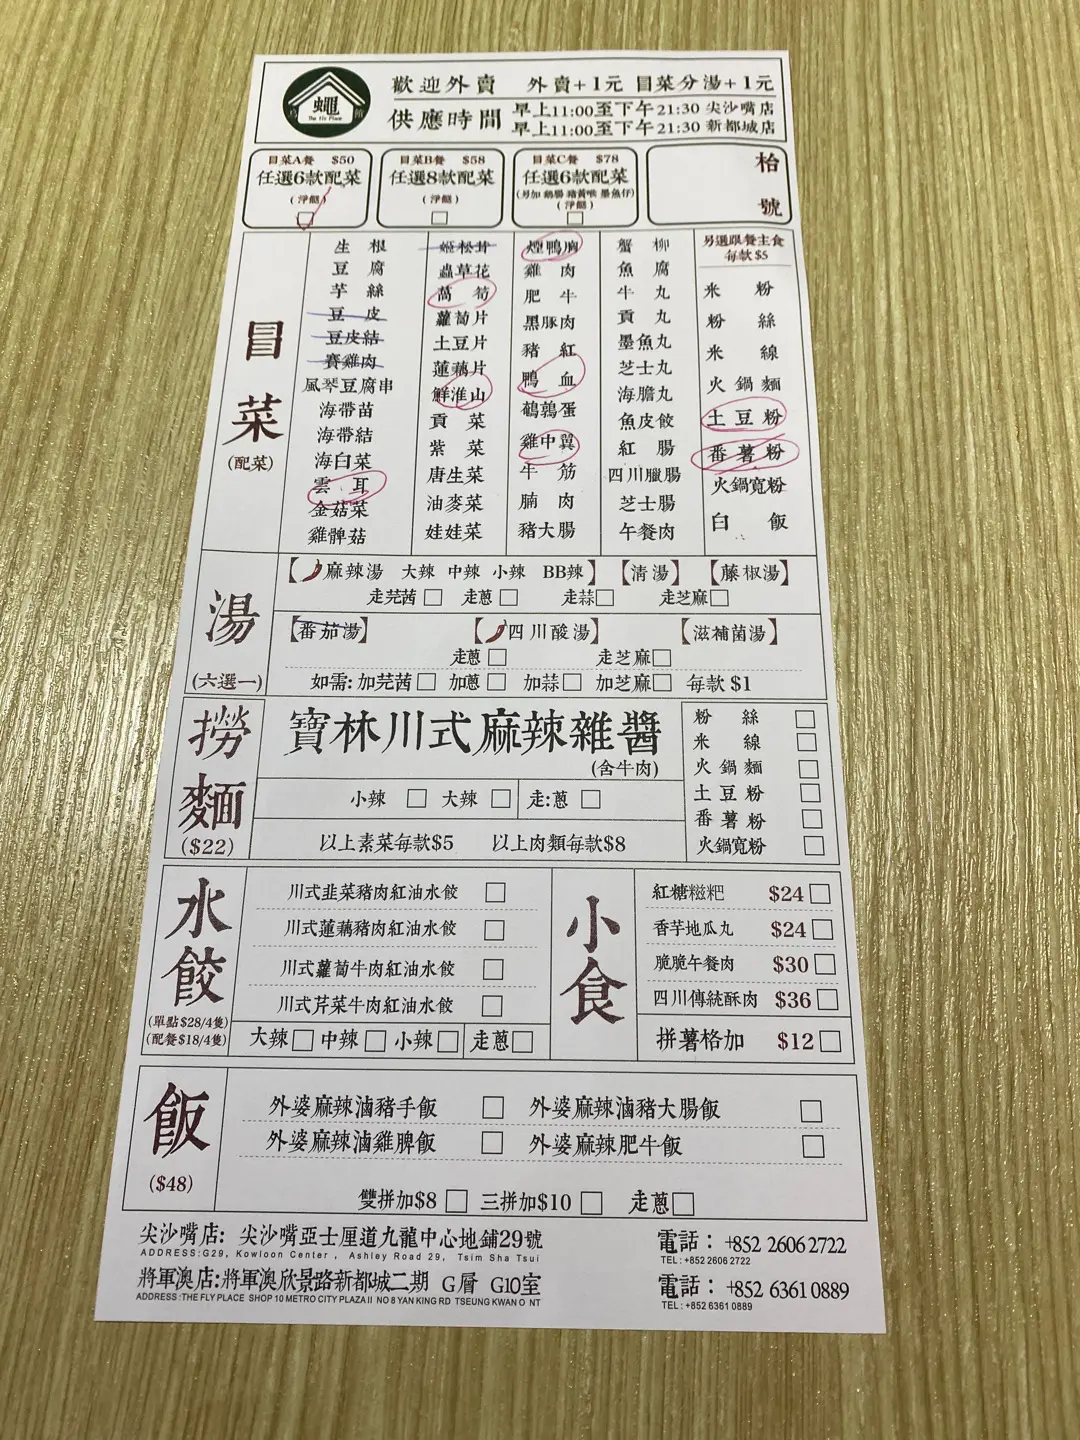 蠅
The Fly Place
歡迎外賣 外賣+1元 冒菜分湯+1元
供應時間 早上11:00至下午21:30 尖沙嘴店
早上11:00至下午21:30 新都城店
冒菜A餐 $50
任選6款配菜
(淨餸)
冒菜B餐 $58
任選8款配菜
(淨餸)
冒菜C餐 $78
任選6款配菜
(另加 鵝腸 豬黃喉 墨魚仔)
(淨餸)
枱
號
冒菜
(配菜)
生根
豆腐
芋絲
豆皮
豆皮結
賽雞肉
風琴豆腐串
海帶苗
海帶結
海白菜
雲耳
金菇菜
雞髀菇
姬松茸
蟲草花
萵筍
蘿蔔片
土豆片
蓮藕片
鮮淮山
貢菜
紫菜
唐生菜
油麥菜
娃娃菜
煙鴨胸
雞肉
肥牛
黑豚肉
豬紅
鴨血
鵪鶉蛋
雞中翼
牛筋
腩肉
豬大腸
蟹柳
魚腐
牛丸
貢丸
墨魚丸
芝士丸
海膽丸
魚皮餃
紅腸
四川臘腸
芝士腸
午餐肉
另選跟餐主食
每款$5
米粉
粉絲
米線
火鍋麵
土豆粉
番薯粉
火鍋寬粉
白飯
湯
(六選一)
【麻辣湯 大辣 中辣 小辣 BB辣】 【清湯】 【藤椒湯】
走芫茜 走蔥 走蒜 走芝麻
【番茄湯】 【四川酸湯】 【滋補菌湯】
走蔥 走芝麻
如需: 加芫茜 加蔥 加蒜 加芝麻 每款 $1
撈麵
($22)
寶林川式麻辣雜醬
(含牛肉)
小辣 大辣 走:蔥
以上素菜每款$5 以上肉類每款$8
粉絲
米線
火鍋麵
土豆粉
番薯粉
火鍋寬粉
水餃
(單點$28/4隻)
(配餐$18/4隻)
川式韭菜豬肉紅油水餃
川式蓮藕豬肉紅油水餃
川式蘿蔔牛肉紅油水餃
川式芹菜牛肉紅油水餃
大辣 中辣 小辣 走蔥
小食
紅糖糍粑 $24
香芋地瓜丸 $24
脆脆午餐肉 $30
四川傳統酥肉 $36
拼薯格加 $12
飯
($48)
外婆麻辣滷豬手飯 外婆麻辣滷豬大腸飯
外婆麻辣滷雞脾飯 外婆麻辣肥牛飯
雙拼加$8 三拼加$10 走蔥
尖沙嘴店: 尖沙嘴亞士厘道九龍中心地鋪29號 電話: +852 2606 2722
ADDRESS:G29, Kowloon Center , Ashley Road 29, Tsim Sha Tsui TEL:+852 2606 2722
將軍澳店:將軍澳欣景路新都城二期 G層 G10室 電話: +852 6361 0889
ADDRESS :THE FLY PLACE SHOP 10 METRO CITY PLAZA II NO 8 YAN KING RD TSEUNG KWAN O NT TEL:+852 6361 0889